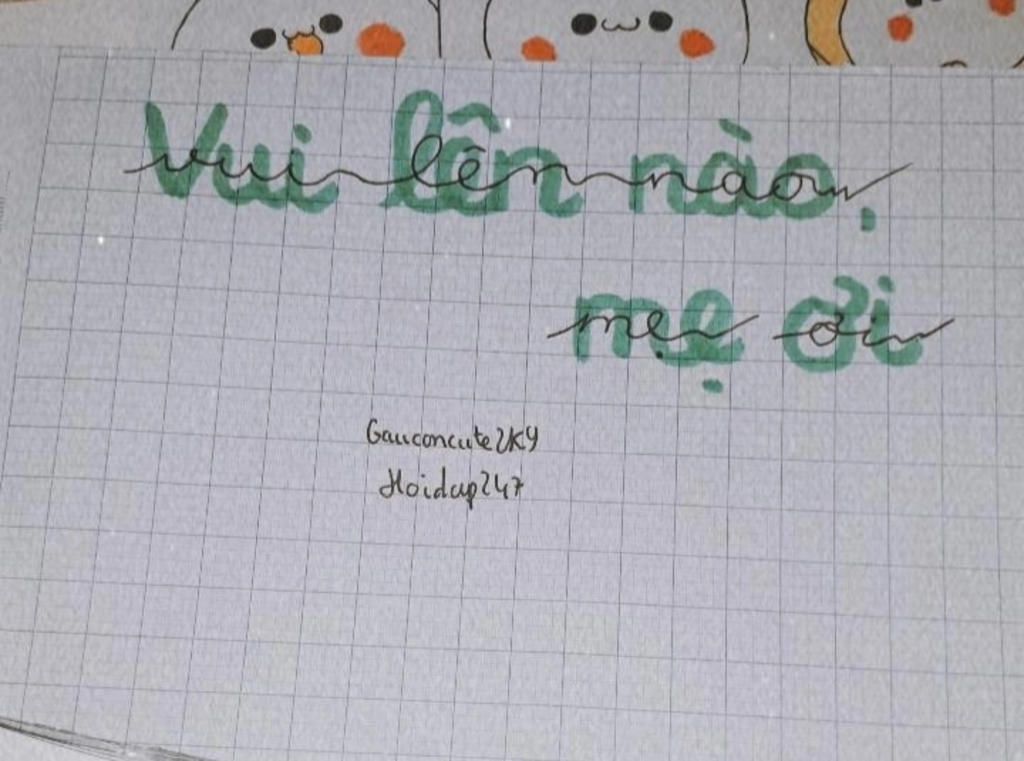 Vui lên nào,
mẹ ơi
Gauconcute2K9
Hoidap247